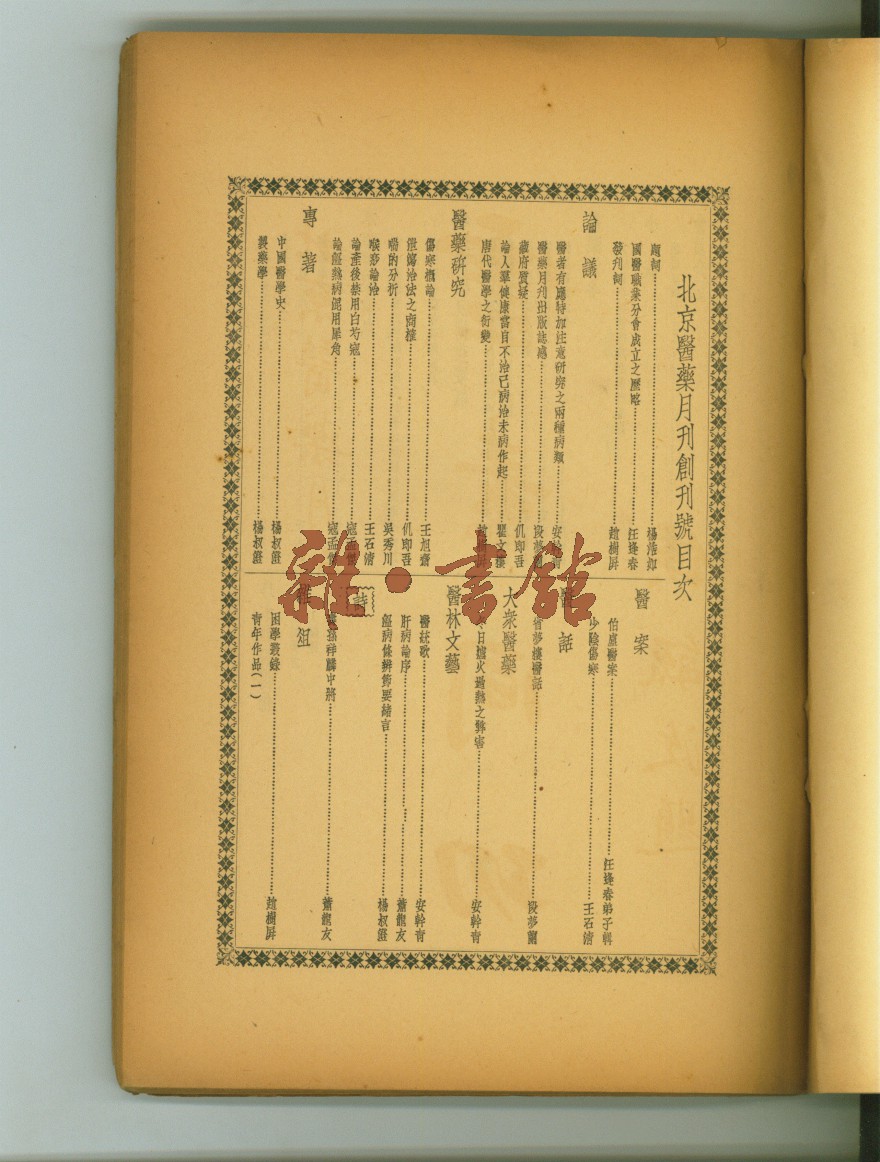 北京醫藥月刊創刊號目次
題詞
國醫職業分會成立之歷略 汪逢春
發刊詞 趙樹屏
論議
醫者有應特加注意研究之兩種病類
醫藥月刊出版誌感
藏府質疑 仉即吾
論人羣健康當自不治已病治未病作起
唐代醫學之衍變
醫藥研究
傷寒概論 王旭齋
治法之商榷 仉即吾
喘的分析 吳秀川
喉痧論治 王石清
論產後禁用白芍
論溫熱病混用犀角
專著
中國醫學史 楊叔澄
製藥學 楊叔澄
醫案
泊廬醫案 汪逢春弟子輯
少陰傷寒 王石清
醫話
夢樓醫話 段夢蘭
大衆醫藥
冬日爐火過熱之弊害 安幹青
醫林文藝
醫紘歌 安幹青
肝病論序 蕭龍友
溫病條辨節要緒言 楊叔澄
詩
孫祥麟中將 蕭龍友
雜俎
困學叢錄 趙樹屏
青年作品(一)
雜·書館